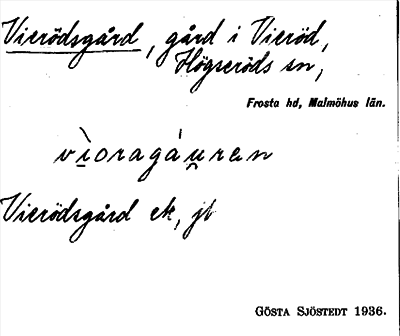 Vierödsgård, gård i Vieröd,
Högseröds sn,
Frosta hd, Malmöhus län.
vìoragáu̯ren
Vierödsgård ek, jb
GÖSTA SJÖSTEDT 1936.